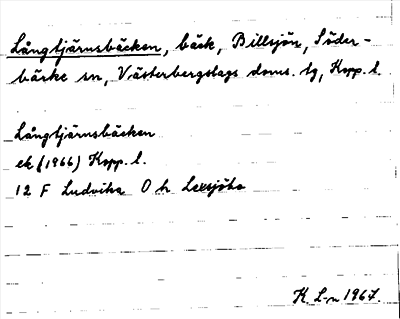 Långtjärnsbäcken, bäck, Billsjön, Söder-
bärke sn, Västerbergslags doms. tg, Kopp. l.
Långtjärnsbäcken
ek (1966) Kopp. l.
12 F Ludvika O h Laxsjöho
K. L-n 1967.